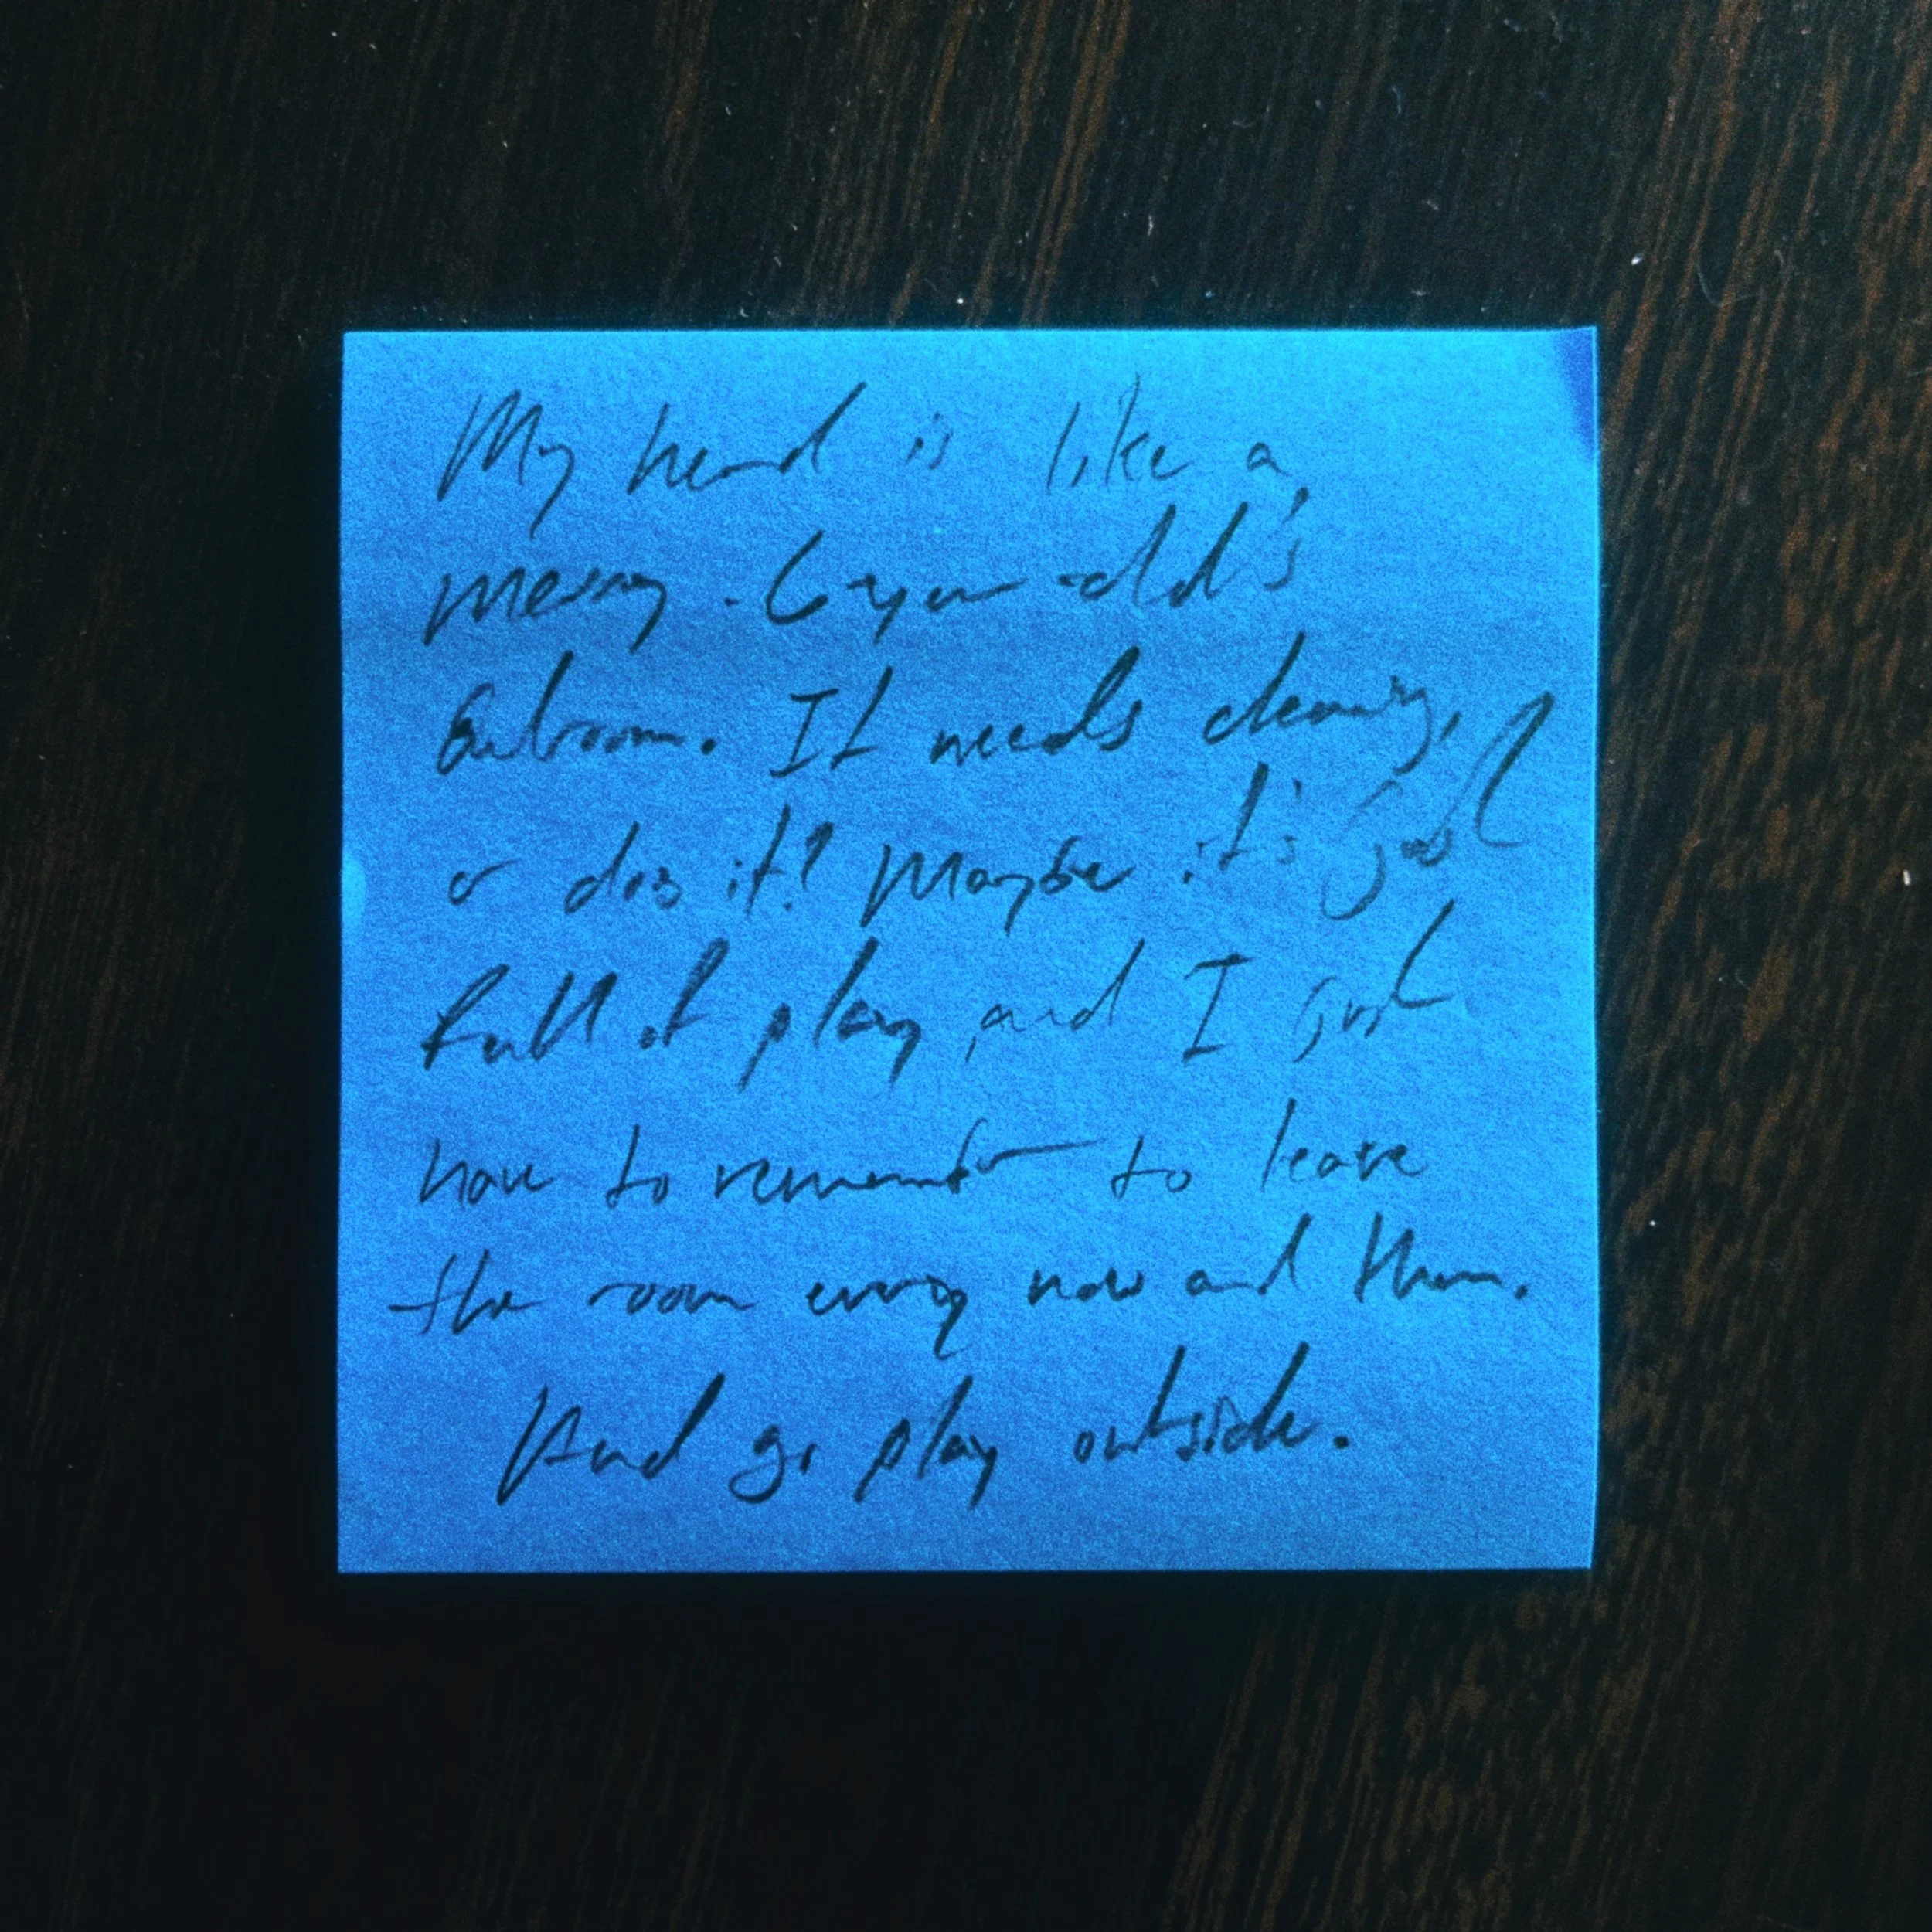 My head is like a
messy 6-year-old's
bedroom. It needs cleaning,
or does it? Maybe it's just
full of play, and I just
have to remember to leave
the room every now and then.
And go play outside.